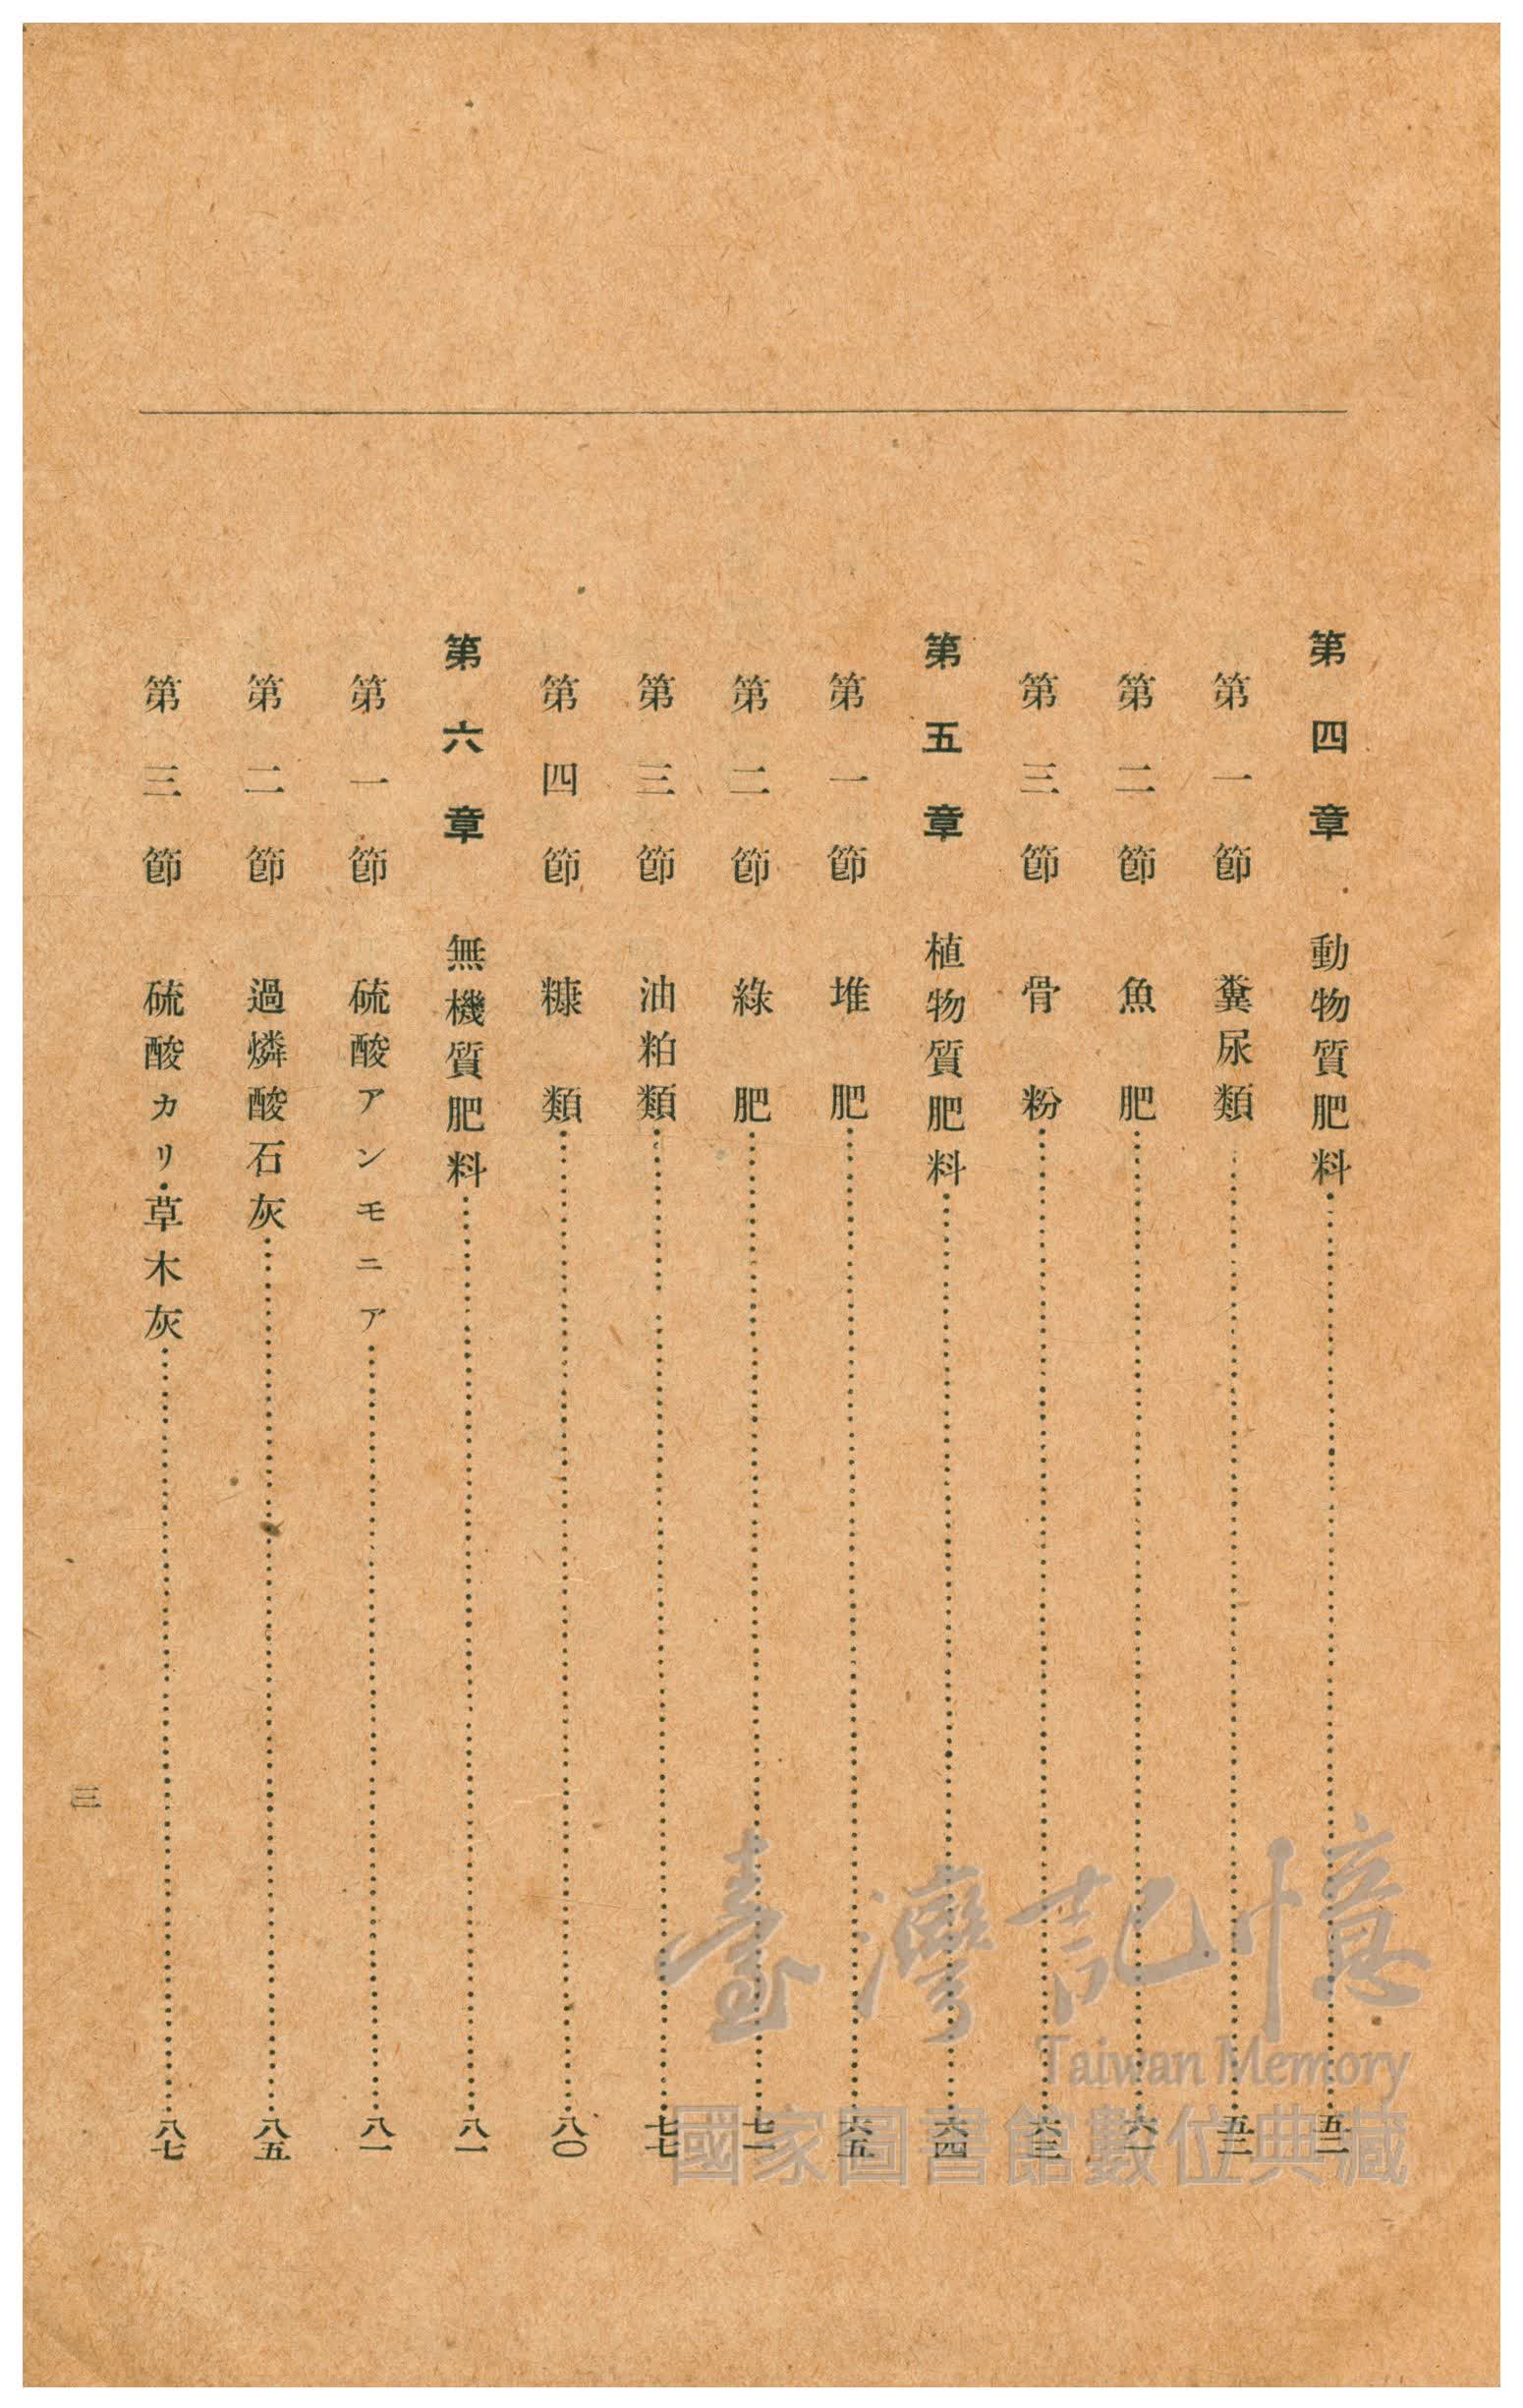 第四章　動物質肥料……五二
第一節　糞尿類……五二
第二節　魚肥……六一
第三節　骨粉……六三
第五章　植物質肥料……六四
第一節　堆肥……六五
第二節　綠肥……七一
第三節　油粕類……七七
第四節　糠類……八〇
第六章　無機質肥料……八一
第一節　硫酸アンモニア……八一
第二節　過燐酸石灰……八五
第三節　硫酸カリ・草木灰……八七
三
臺灣記憶
Taiwan Memory
國家圖書館數位典藏